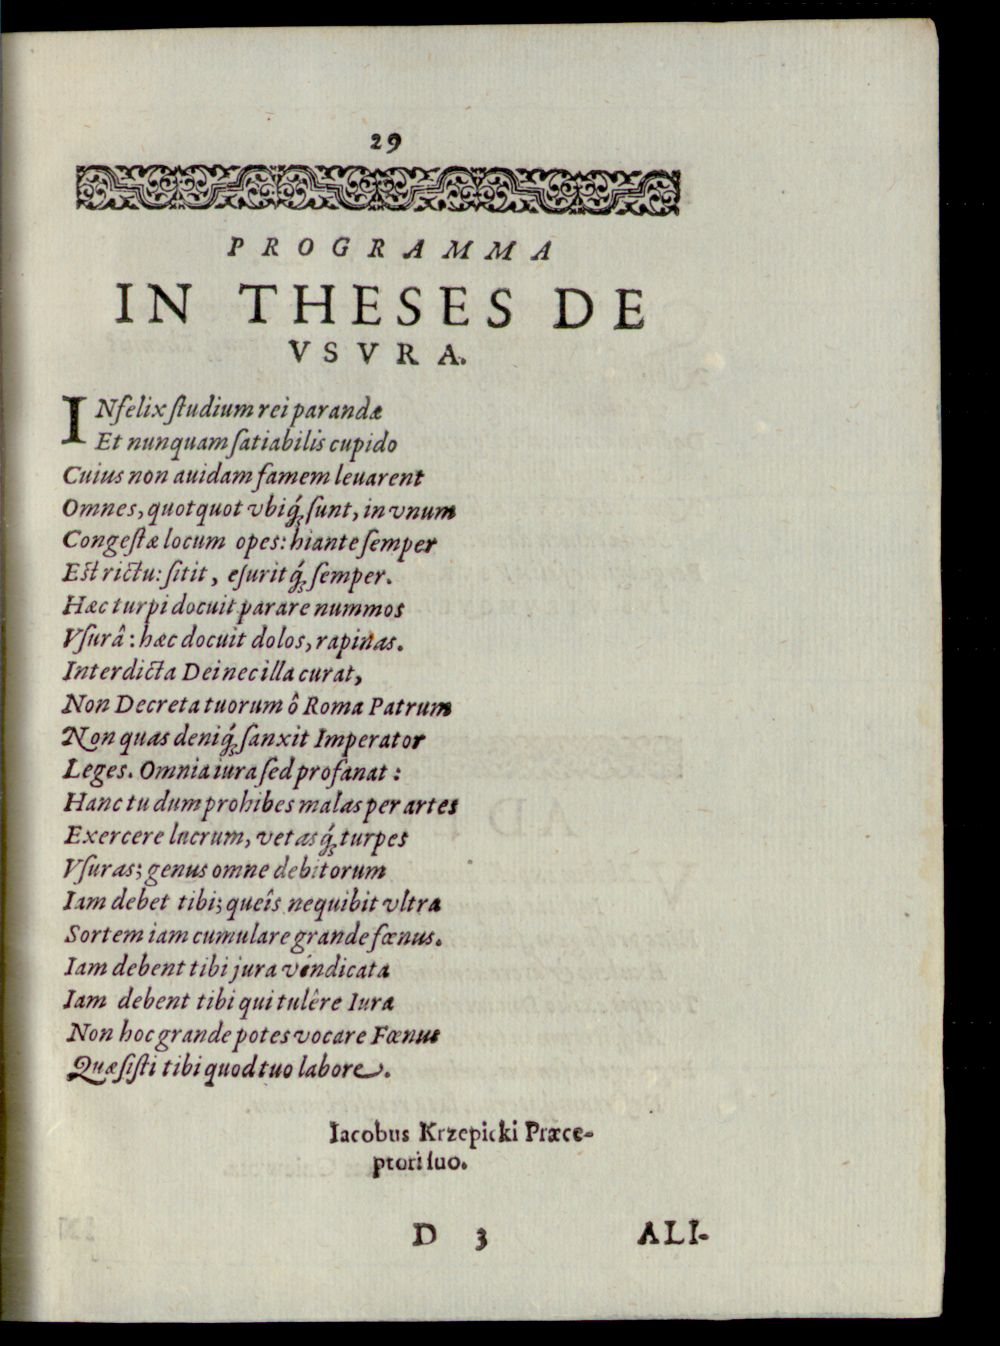 29
PROGRAMMA
IN THESES DE
VSVRA.
INſelix ſtudium rei parandæ
Et nunquam ſatiabilis cupido
Cuius non auidam famem leuarent
Omnes, quotquot vbiq́; ſunt, in vnum
Congeſtæ locum opes: hiante ſemper
Eſt rictu: ſitit, eſurit q́; ſemper.
Hæc turpi docuit parare nummos
Vſurâ: hæc docuit dolos, rapinas.
Interdicta Dei nec illa curat,
Non Decreta tuorum ô Roma Patrum
Non quas deniq́; ſanxit Imperator
Leges. Omnia iura ſed profanat:
Hanc tu dum prohibes malas per artes
Exercere lucrum, vetas q́; turpes
Vſuras; genus omne debitorum
Iam debet tibi; queîs nequibit vltra
Sortem iam cumulare grande fœnus.
Iam debent tibi jura véndicata
Iam debent tibi qui tulêre Iura
Non hoc grande potes vocare Fœnus
Quæſiſti tibi quod tuo labore.
Iacobus Krzepicki Præce-
ptori ſuo.
D 3 ALI-